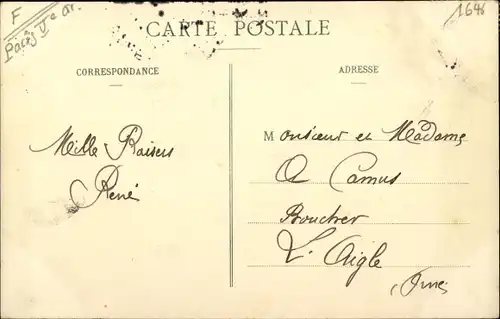 F
Paris Ve ar.
1648
CARTE POSTALE
CORRESPONDANCE
ADRESSE
Mille Baisers
René
Monsieur et Madame
A Camus
Boucher
L'Aigle
Orne